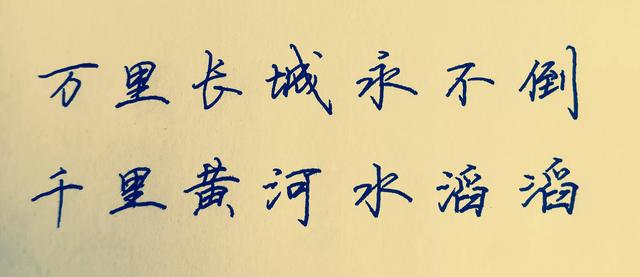 万里长城永不倒
千里黄河水滔滔